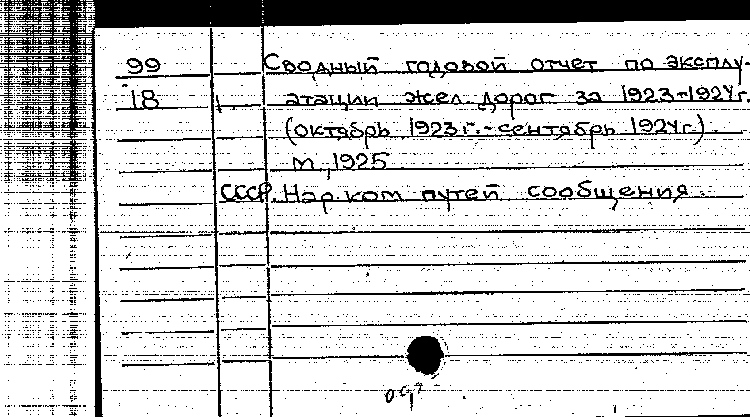 99 Сводный годовой отчет по эксплу-
18 атации жел. дорог за 1923-1924г.
(октябрь 1923г.-сентябрь 1924г.)
М.,1925
СССР. Нар.ком путей сообщения.